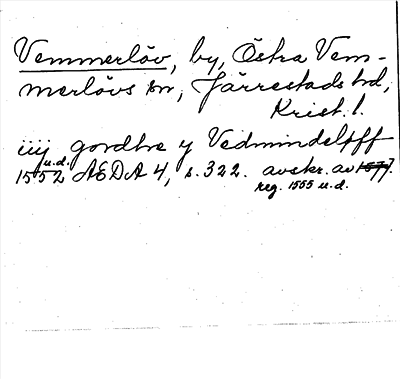 Vemmerlöv, by, Östra Vem-
merlövs sn, Järrestads hd,
Krist. l.
iiij gordhe y Vedmindelpff
u.d.
1552 AEDA 4, s. 322. avskr. av 1577.
reg. 1555 u.d.